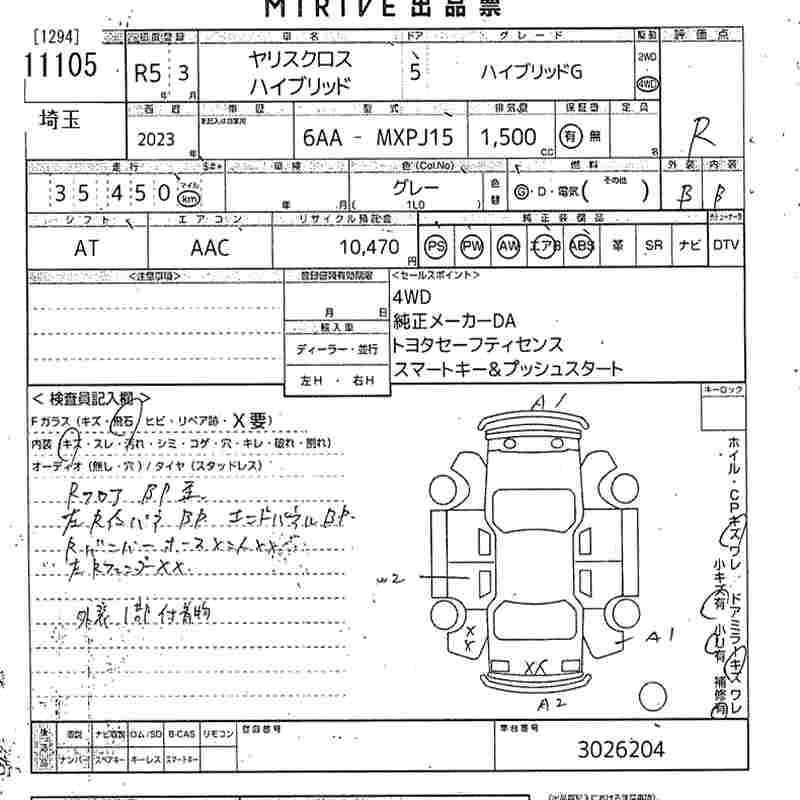 MIRIVE 出品票
[1294]
11105
埼玉
初度登録 車名 ドア グレード 駆動 評価点
R5 3 ヤリスクロス ハイブリッド 5 ハイブリッドG 2WD 4WD
年 月
西暦 車歴 型式 排気量 保証書 定員
2023 年 6AA - MXPJ15 1,500 cc 有 無 名 R
走行 車検 色(Col.No) 燃料 外装 内装
35 450 マイル km 年 月 グレー ( 1L0 ) 色替 G・D・電気( その他 ) B B
シフト エアコン リサイクル預託金 純正装備品
AT AAC 10,470 円 PS PW AW エアB ABS 革 SR ナビ DTV
<注意事項> 登録書類有効期限 <セールスポイント>
月 日
輸入車
ディーラー・並行
左H ・ 右H
4WD
純正メーカーDA
トヨタセーフティセンス
スマートキー&プッシュスタート
< 検査員記入欄 > キーロック
Fガラス (キズ・飛石・ヒビ・リペア跡・X要)
内装 (キズ・スレ・汚れ・シミ・コゲ・穴・キレ・破れ・割れ)
オーディオ (無し・穴) / タイヤ (スタッドレス)
Rフロア BP歪
左Rインパネ BP. エンドパネルBP.
左RフェンダーXX
外装 1部 付着物
A1
W2
XX
A1
XX
A2
ホイル・CPキズワレ ドアミラーキズワレ
小キズ有 小U有 補修有
ナビ取説 ROM/SD B-CAS リモコン 登録番号 車台番号
ナンバー スペアキー キーレス スマートキー
3026204